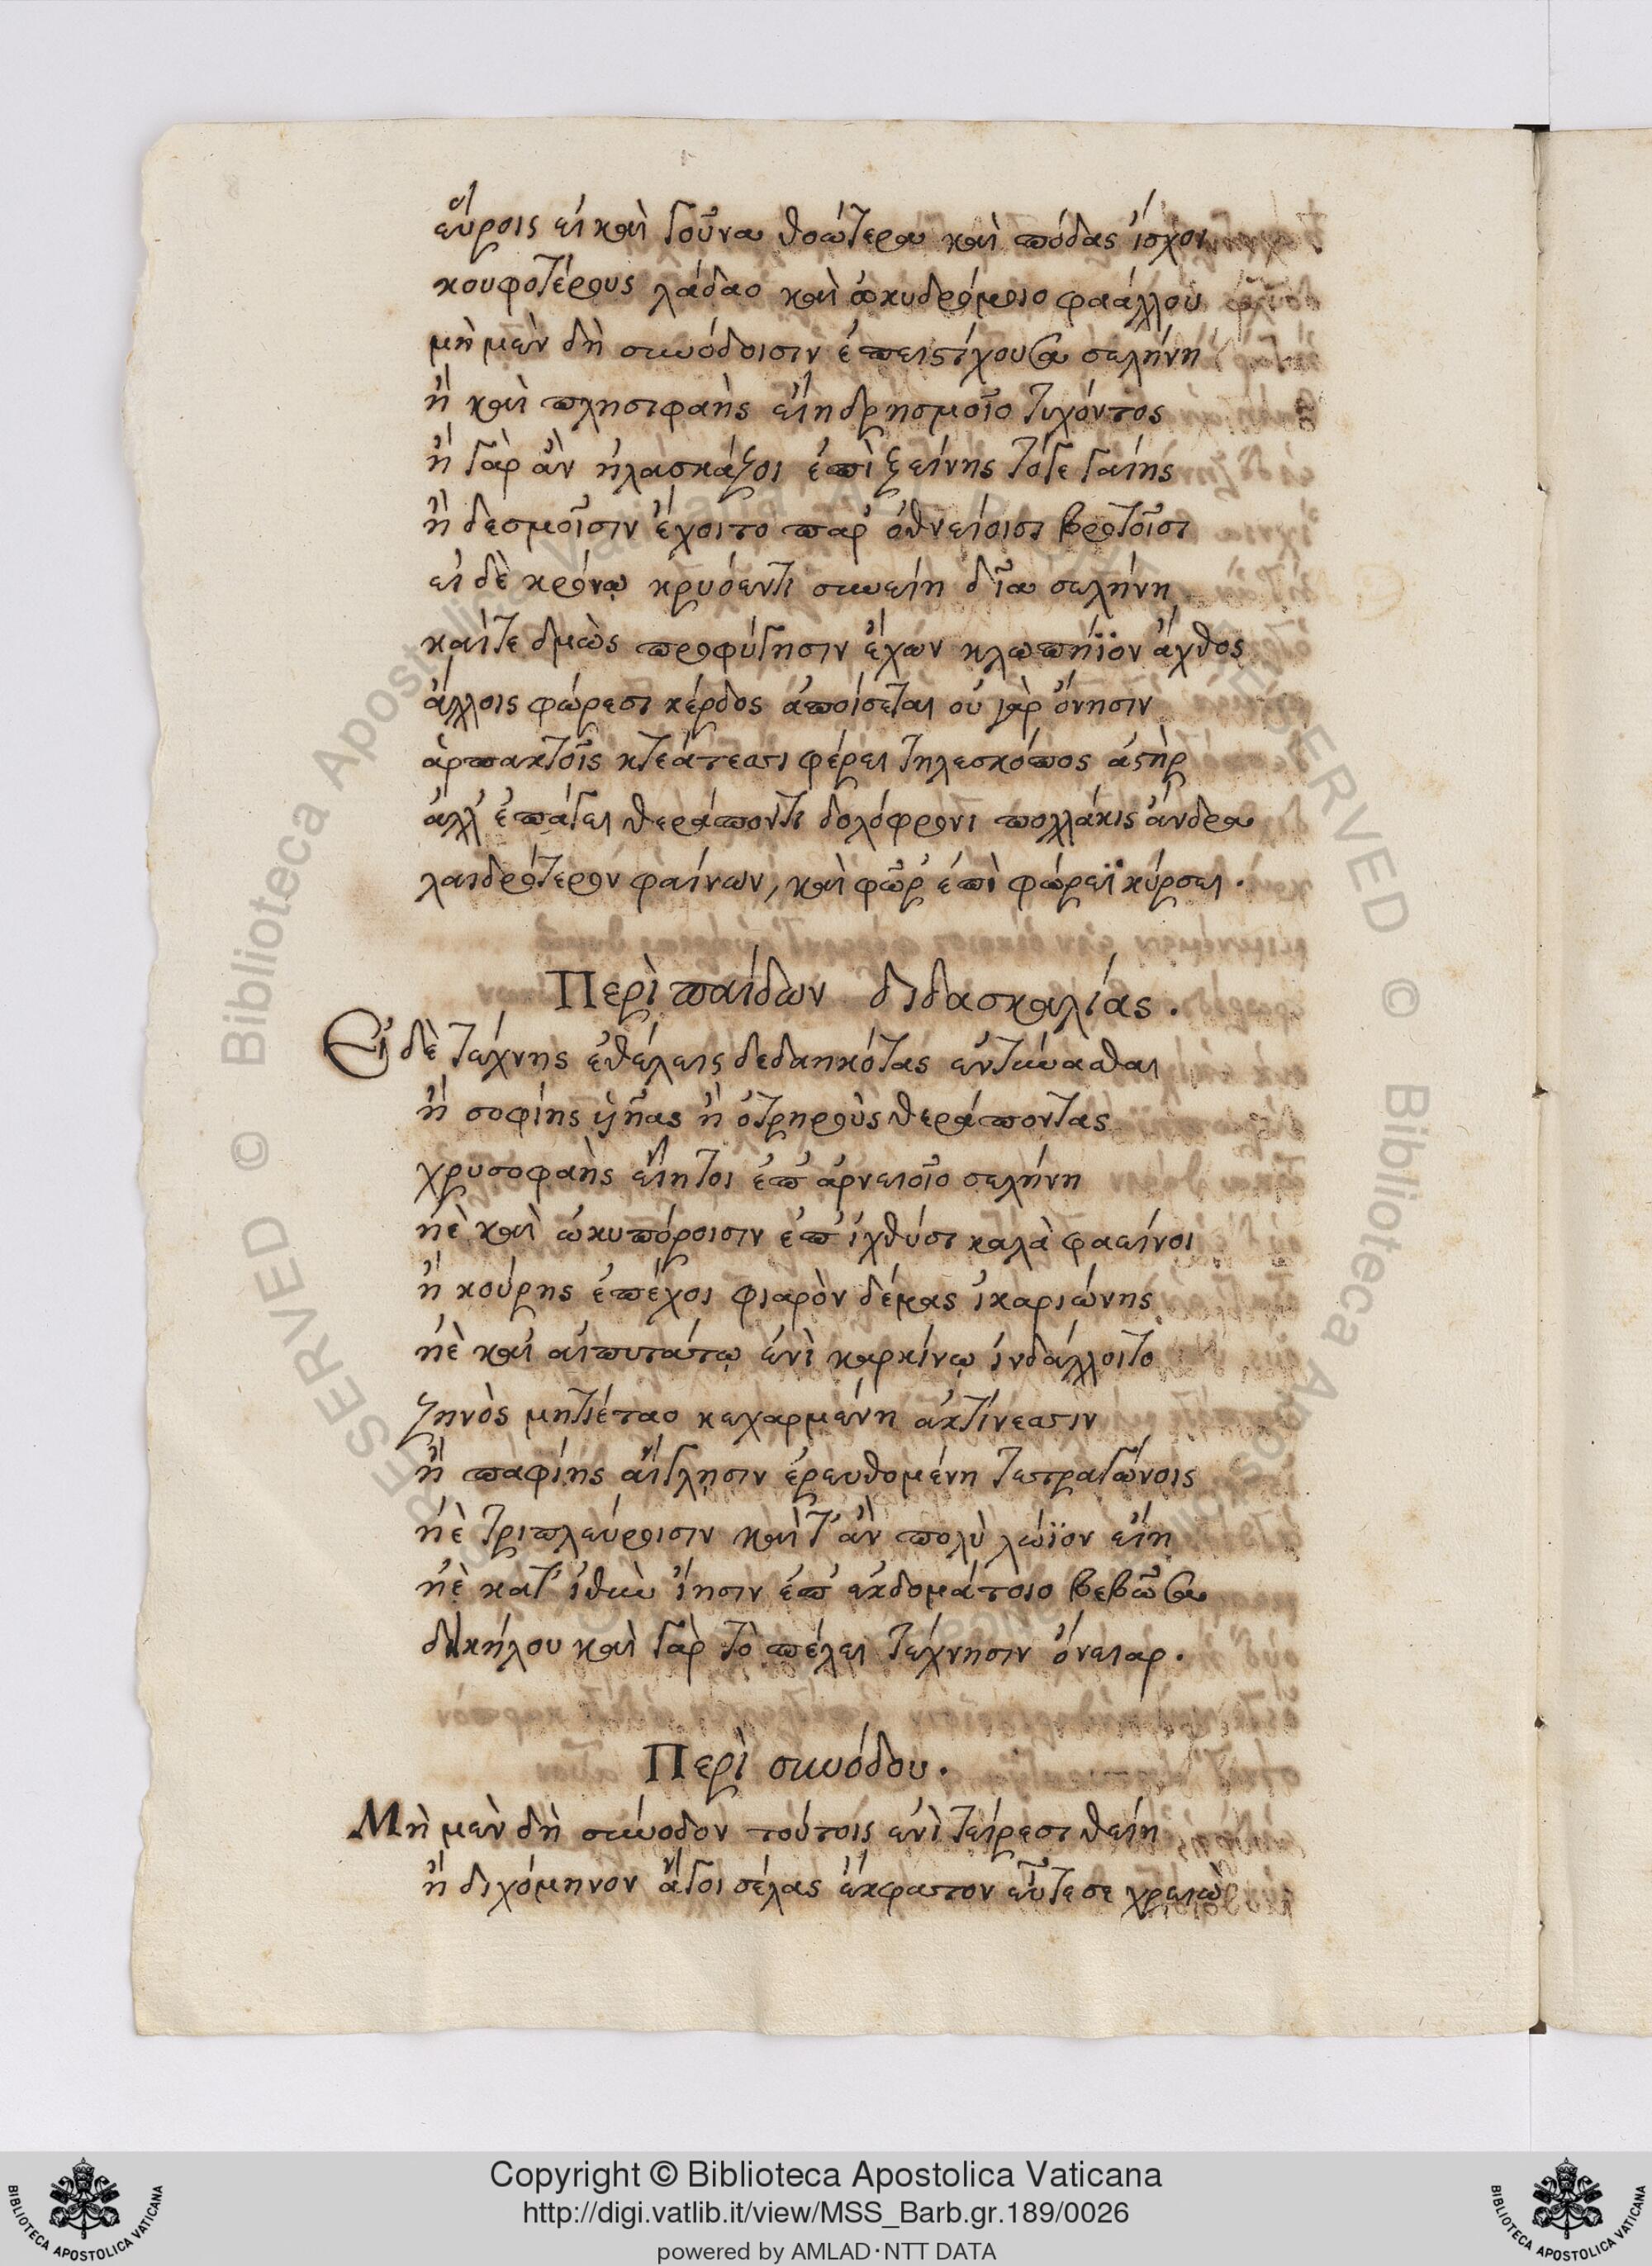 εὕροις εἰ καὶ γοῦνα θοώτερα καὶ πόδας ἴσχοι
κουφοτέρους λάδαο καὶ ὠκυδρόμοιο φαάλλου
μὴ μὲν δὴ συνόδοισιν ἐπειστίχουσα σελήνη
ἢ καὶ πλησιφαὴς εἴη δρησμοῖο τυχόντος
ἢ γὰρ ἂν ἠλασκάζοι ἐπὶ ξείνης τόγε γαίης
ἢ δεσμοῖσιν ἔχοιτο παρ' ὀθνείοισι βροτοῖσι
εἰ δὲ κρόνῳ κρυόεντι συνείη δῖα σελήνη
καίτε δμὼς προφύγησιν ἔχων κλωπήϊον ἄχθος
ἄλλοις φώρεσι κέρδος ἀποίσεται οὐ γὰρ ὄνησιν
ἁρπακτοῖς κτεάτεσσι φέρει τηλεσκόπος ἀστὴρ
ἀλλ' ἐπάγει θεράποντι δολόφρονι πολλάκις ἄνδρα
λαιδρότερον φαίνων, καὶ φῶρ ἐπὶ φώρεϊ κύρσει.
Περὶ παίδων διδασκαλίας.
Εἰ δὲ τέχνης ἐθέλεις δεδαηκότας ἐντύνασθαι
ἢ σοφίης υἷας ἢ ὀτρηροὺς θεράποντας
χρυσοφαὴς εἴη τοι ἐπ' ἀρνειοῖο σελήνη
ἠὲ καὶ ὠκυπόροισιν ἐπ' ἰχθύσι καλὰ φαείνοι
ἢ κούρης ἐπέχοι φιαρὸν δέμας ἰκαριώνης
ἠὲ καὶ αἰπυτάτῳ ἐνὶ καρκίνῳ ἰνδάλλοιτο
ζηνὸς μητιέταο κεχαρμένη ἀκτίνεσσιν
ἢ παφίης αἴγλησιν ἐρευθομένη τετραγώνοις
ἠὲ τριπλεύροισιν καὶ τ' ἂν πολὺ λώϊον εἴη
ἠὲ κατ' ἰθὺν ἴησιν ἐπ' ἑκδομάτοιο βεβῶσα
δικήλου καὶ γὰρ τὸ πέλει τέχνησιν ὄνειαρ.
Περὶ συνόδου.
Μὴ μὲν δὴ σύνοδον τούτοις ἐνὶ τείρεσι θείη
ἢ διχόμηνον ἄγοι σέλας ἔκφατον εὖτε σε χρειὼ
Copyright © Biblioteca Apostolica Vaticana
http://digi.vatlib.it/view/MSS_Barb.gr.189/0026
powered by AMLAD·NTT DATA